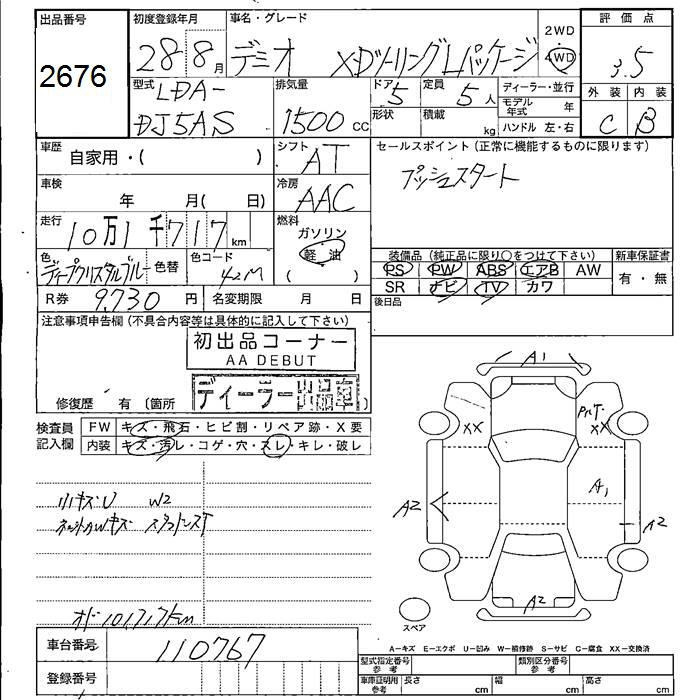 出品番号
2676
初度登録年月
28年8月
車名・グレード
デミオ XDツーリングLパッケージ
2WD
4WD
評価点
3.5
外装 内装
C B
型式
LDA-
DJ5AS
排気量
1500 cc
ドア
5
定員
5人
形状
積載
kg
ディーラー・並行
モデル年式 年
ハンドル 左・右
車歴
自家用・( )
シフト
AT
セールスポイント(正常に機能するものに限ります)
プッシュスタート
車検
年 月( 日)
冷房
AAC
走行
10万1千717km
燃料
ガソリン
軽油
( )
色
ディープクリスタルブルー
色替
色コード
42M
装備品(純正品に限り○をつけて下さい)
新車保証書
PS PW ABS エアB AW
有・無
SR ナビ TV カワ
R券 9730 円
名変期限 月 日
後日品
注意事項申告欄(不具合内容等は具体的に記入して下さい)
初出品コーナー
AA DEBUT
ディーラー出品車
修復歴 有(箇所 )
検査員
記入欄
FW キズ・飛石・ヒビ割・リペア跡・X要
内装 キズ・汚レ・コゲ・穴・スレ・キレ・破レ
W2
オド101,717km
A1
XX
XX
A1
A2
A2
A2
スペア
車台番号
110767
登録番号
A−キズ E−エクボ U−凹み W−補修跡 S−サビ C−腐食 XX−交換済
型式指定番号
参考
類別区分番号
参考
車庫証明用
参考
長さ cm
幅 cm
高さ cm